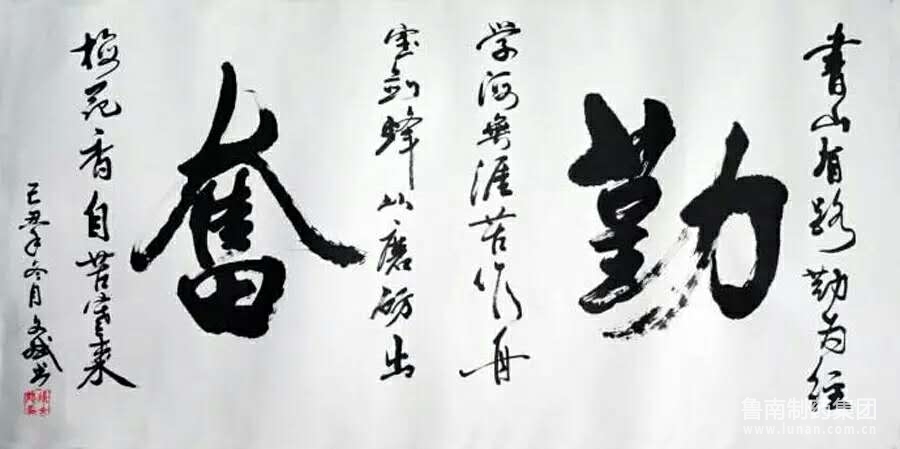 書山有路勤为径
勤
学海無涯苦作舟
宝剑锋从磨砺出
奮
梅花香自苦寒来
己丑年冬月文斌书
鲁南制药集团
www.lunan.com.cn